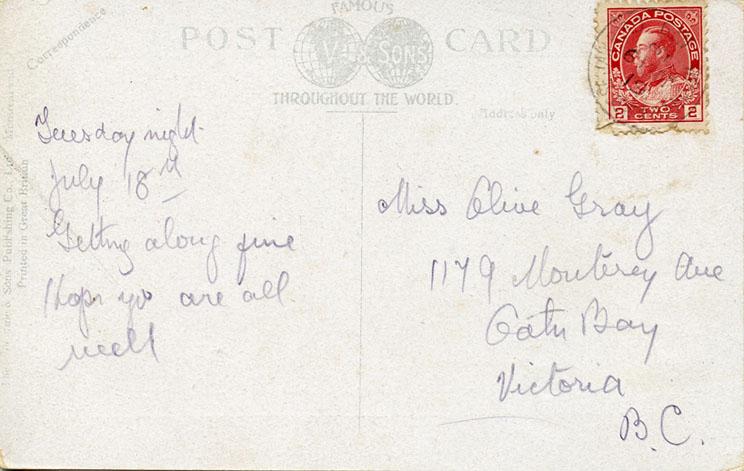 Correspondence
FAMOUS
POST CARD
V & SONS
THROUGHOUT THE WORLD.
Address only
CANADA POSTAGE
2 TWO CENTS 2
Sons Publishing Co., Ltd.
Printed in Great Britain
Tuesday night
July 18th
Getting along fine
Hope you are all
well
Miss Olive Gray
1179 Monterey Ave
Oak Bay
Victoria
B.C.